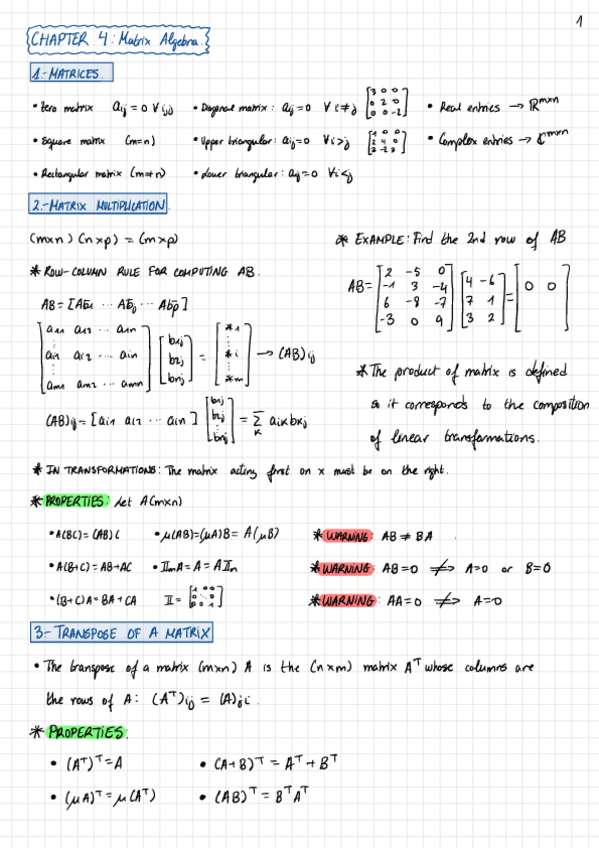 1
CHAPTER 4: Matrix Algebra.
1-MATRICES.
• Zero matrix aij = 0 ∀ i,j • Diagonal matrix: aij = 0 ∀ i≠j [3 0 0; 0 2 0; 0 0 -2] • Real entries → ℝ^m×n
• Square matrix (m=n) • Upper triangular: aij=0 ∀i>j [1 0 0; 2 4 0; 3 -2 7] • Complex entries → ℂ^m×n
• Rectangular matrix (m≠n) • Lower triangular: aij=0 ∀i<j
2.-MATRIX MULTIPLICATION.
(m×n) (n×p) = (m×p)
* ROW-COLUMN RULE FOR COMPUTING AB.
AB = [Ab1 ... Abj ... Abp]
[a11 a12 ... a1n
ai1 ai2 ... ain
am1 am2 ... amn] [b1j b2j bnj] = [*1 ⋮ *i ⋮ *m] → (AB)ij
(AB)ij = [ai1 ai2 ... ain] [b1j b2j ⋮ bnj] = Σ_k aik bkj
* EXAMPLE: Find the 2nd row of AB
AB = [2 -5 0; -1 3 -4; 6 -8 -7; -3 0 9] [4 -6; 7 1; 3 2] = [0 0]
* The product of matrix is defined
so it corresponds to the composition
of linear transformations.
* IN TRANSFORMATIONS: The matrix acting first on x must be on the right.
* PROPERTIES: Let A(m×n)
• A(BC) = (AB)C • μ(AB)=(μA)B = A(μB) * WARNING: AB ≠ BA
• A(B+C) = AB+AC • 𝕀mA = A = A𝕀n * WARNING: AB=0 ⇏ A=0 or B=0
• (B+C)A = BA+CA 𝕀 = [1 0 0; 0 ⋱ 0; 0 0 1] * WARNING: AA=0 ⇏ A=0
3-TRANSPOSE OF A MATRIX
• The transpose of a matrix (m×n) A is the (n×m) matrix A^T whose columns are
the rows of A: (A^T)ij = (A)ji.
* PROPERTIES:
• (A^T)^T = A • (A+B)^T = A^T + B^T
• (μA)^T = μ(A^T) • (AB)^T = B^T A^T